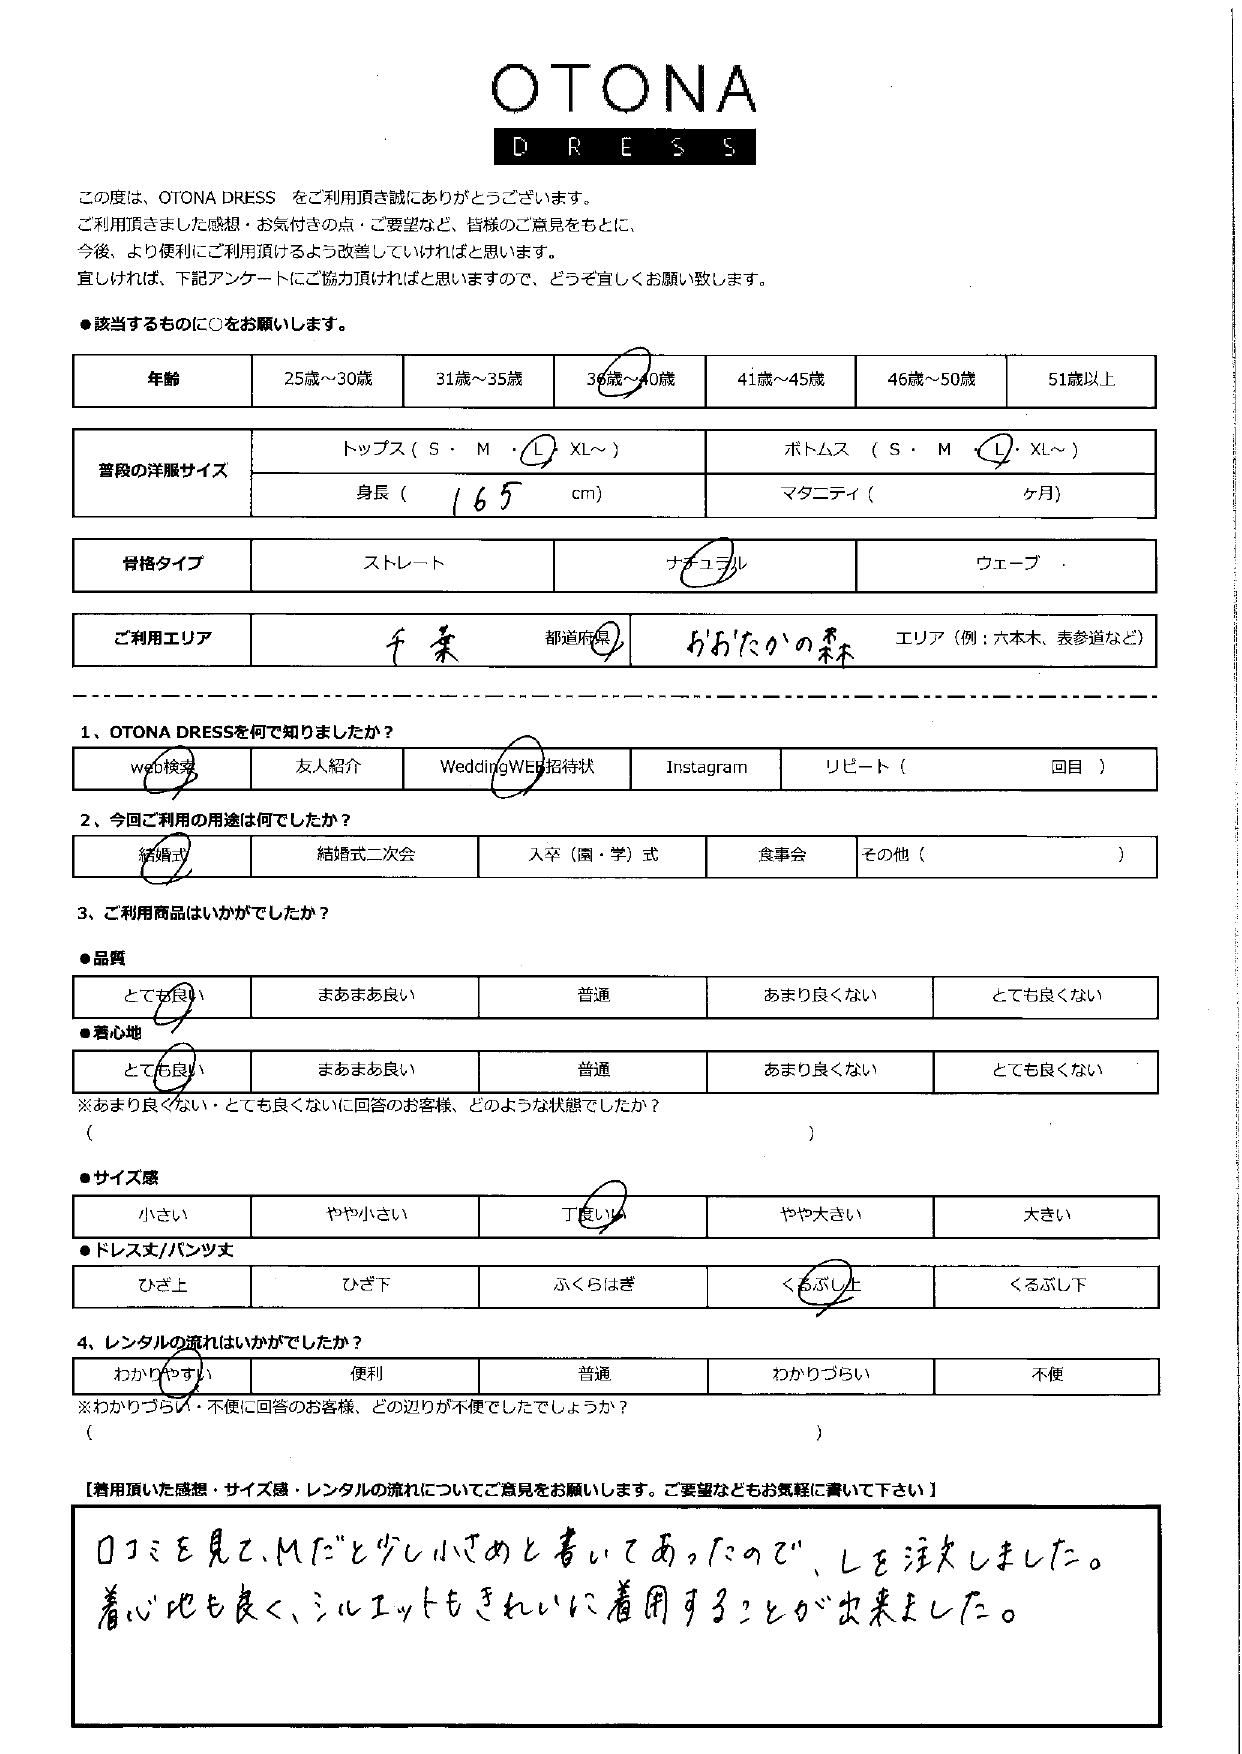 OTONA
DRESS
この度は、OTONA DRESS　をご利用頂き誠にありがとうございます。
ご利用頂きました感想・お気付きの点・ご要望など、皆様のご意見をもとに、
今後、より便利にご利用頂けるよう改善していければと思います。
宜しければ、下記アンケートにご協力頂ければと思いますので、どうぞ宜しくお願い致します。
●該当するものに○をお願いします。
年齢 25歳～30歳 31歳～35歳 36歳～40歳 41歳～45歳 46歳～50歳 51歳以上
普段の洋服サイズ トップス ( S ・ M ・ L ・ XL～ ) ボトムス ( S ・ M ・ L ・ XL～ )
身長 ( 165 cm) マタニティ ( ヶ月)
骨格タイプ ストレート ナチュラル ウェーブ
ご利用エリア 千葉 都道府県 おおたかの森 エリア（例：六本木、表参道など）
1、OTONA DRESSを何で知りましたか？
web検索 友人紹介 WeddingWEB招待状 Instagram リピート（ 回目 ）
2、今回ご利用の用途は何でしたか？
結婚式 結婚式二次会 入卒（園・学）式 食事会 その他（ ）
3、ご利用商品はいかがでしたか？
●品質
とても良い まあまあ良い 普通 あまり良くない とても良くない
●着心地
とても良い まあまあ良い 普通 あまり良くない とても良くない
※あまり良くない・とても良くないに回答のお客様、どのような状態でしたか？
（ ）
●サイズ感
小さい やや小さい 丁度いい やや大きい 大きい
●ドレス丈/パンツ丈
ひざ上 ひざ下 ふくらはぎ くるぶし上 くるぶし下
4、レンタルの流れはいかがでしたか？
わかりやすい 便利 普通 わかりづらい 不便
※わかりづらい・不便に回答のお客様、どの辺りが不便でしたでしょうか？
（ ）
【着用頂いた感想・サイズ感・レンタルの流れについてご意見をお願いします。ご要望などもお気軽に書いて下さい】
口コミを見て、Mだと少し小さめと書いてあったので、Lを注文しました。
着心地も良く、シルエットもきれいに着用することが出来ました。